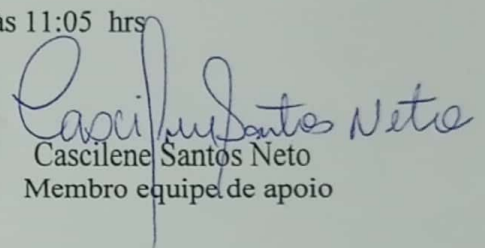 as 11:05 hrs
Cascilene Santos Neto
Cascilene Santos Neto
Membro equipe de apoio